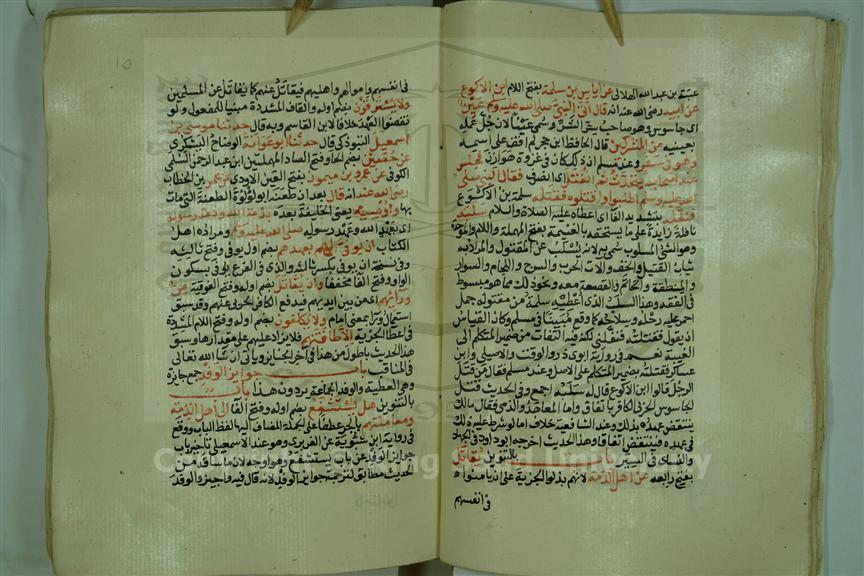 عتبة بن عبد الله الهلالي عن اياس بن سلمة بفتح اللام ابن الاكوع
عن ابيه رضى الله عنه انه قال اتى النبي صلى الله عليه وسلم عين
اي جاسوس وهو صاحب سر الشر وسمى عينا لان جل عمله
بعينه من المشركين قال الحافظ ابن حجر لم اقف على اسمه
وهو في سفر وعند مسلم ان ذلك كان في غزوة هوازن فجلس
عند اصحابه يتحدث ثم انفتل اي انصرف فقال النبي صلى
الله عليه وسلم اطلبوه واقتلوه فقتله سلمة بن الاكوع
فنفله بتشديد الفا اي اعطاه عليه الصلاة والسلام سلبه
نافلة زائدة على ما يستحقه بالغنيمة بفتح المهملة واللام والموحدة
وهو الشي المسلوب سمي به لانه يسلب عن المقتول والمراد به
ثياب القتيل والخف والات الحرب والسرج واللجام والسوار
والمنطقة والخاتم والقصعة معه ونحو ذلك مما هو مبسوط
في الفقه وهذا السلب الذي اعطيه سلمة من مقتوله جمل
احمر عليه رحله وسلاحه كما وقع مبينا في مسلم وكان القياس
ان يقول فقتلته فنفلني لكنه فيه التفات من ضمير المتكلم الى
الغيبة نعم في رواية ابوي ذر والوقت والاصيلي وابن
عساكر فقتلته بضمير المتكلم على الاصل وعند مسلم فقال من قتل
الرجل قالوا ابن الاكوع قال له سلبه اجمع وفي الحديث قتل
الجاسوس الحربي الكافر باتفاق واما المعاهد والذمي فقال مالك
ينتقض عهده بذلك وعند الشافعية خلاف اما لو شرط عليه ذلك
في عهده فينتقض اتفاقا وهذا الحديث اخرجه ابو داود في الجهاد
والنساى في السير باب بالتنوين يقاتل
بفتح رابعه عن اهل الذمة لانهم بذلوا الجزية على ان يامنوا
في انفسهم
في انفسهم واموالهم واهليهم فيقاتل عنهم كما يقاتل عن المسلمين
ولا يسترقون بضم اوله والقاف المشددة مبنيا للمفعول ولو
نقضوا العهد خلافا لابن القاسم وبه قال حدثنا موسى بن
اسمعيل التبوذكي قال حدثنا ابو عوانة الوضاح اليشكري
عن حصين بضم الحا وفتح الصاد المهملتين ابن عبد الرحمن السلمى
الكوفي عن عمرو بن ميمون بفتح العين الاودي عن عمر بن الخطاب
رضى الله عنه انه قال بعد ان طعنه ابو لؤلؤة الطعنة التي مات
بها واوصيه يعنى الخليفة بعده بذمة الله وذمة رسوله
اي بعهد الله وعهد رسوله صلى الله عليه وسلم ومراده اهل
الكتاب ان يوفى لهم بعهدهم بضم اول يوفى وفتح ثالثه
وفي نسخة ان يوفي بكسر ثالثه والذي في الفرع يوفى بسكون
الواو وفتح الفا مخففا وان يقاتل بضم اوله وفتح الفوقية من
ورائهم اي من بين ايديهم فيدفع الكافر الحربي عنهم وقد سبق
استعمال ورا بمعنى امام ولا يكلفون بضم اوله وفتح اللام المشددة
في اعطا الجزية الا طاقتهم فلا يزاد عليهم على مقدارها وسبق
هذا الحديث باطول من هذا في اخر الجنايز وياتي ان شا الله تعالى
في المناقب باب جوايز الوفد جمع جايزة
وهي العطية والوفد الجماعة يردون هذا باب
بالتنوين هل يستشفع بضم اوله وفتح الفا الى اهل الذمة
ومعاملتهم بالجر عطفا على الجملة المضاف اليها لفظ الباب ووقع
في رواية ابن شبويه عن الفربري وهو عند الاسمعيلي تاخير باب
جوايز الوفد عن باب يستشفع وهو اوجه لان ما ساقه من
حديث مطابق لترجمة جوايز الوفد لانه قال فيه واجيزوا الوفد